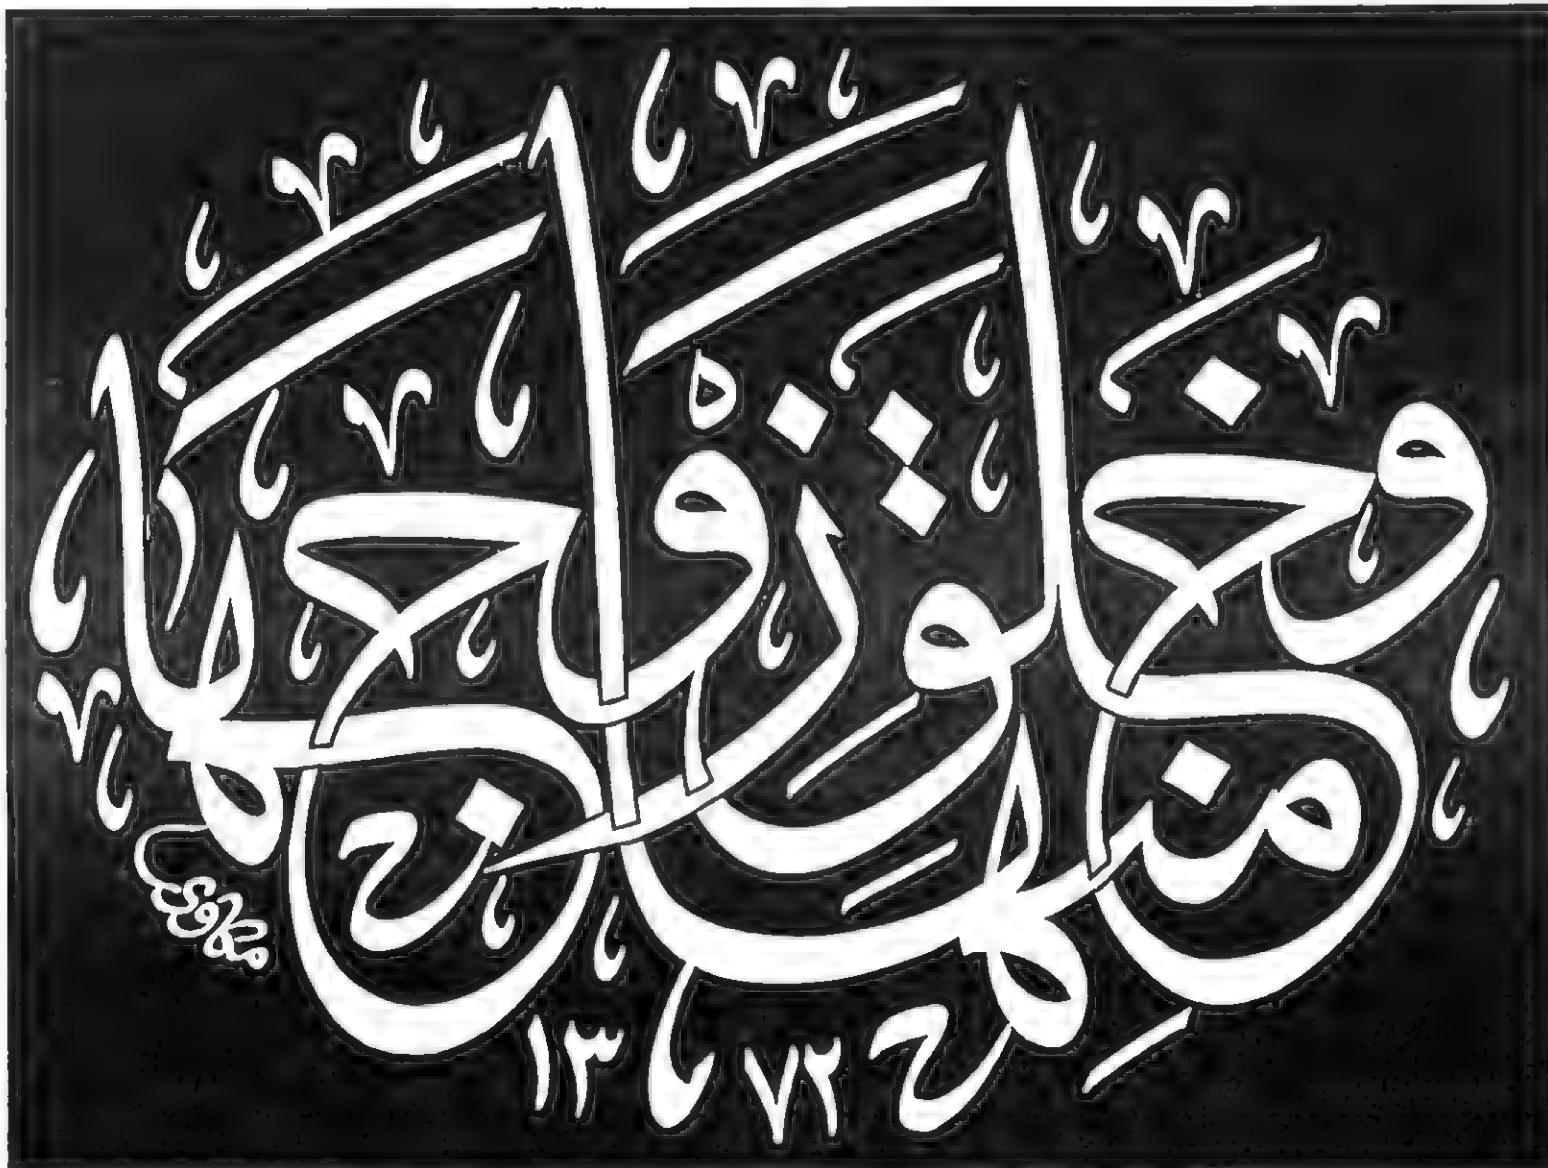 وَخَلَقَ مِنْهَا زَوْجَهَا
مكاوي
١٣٧٢